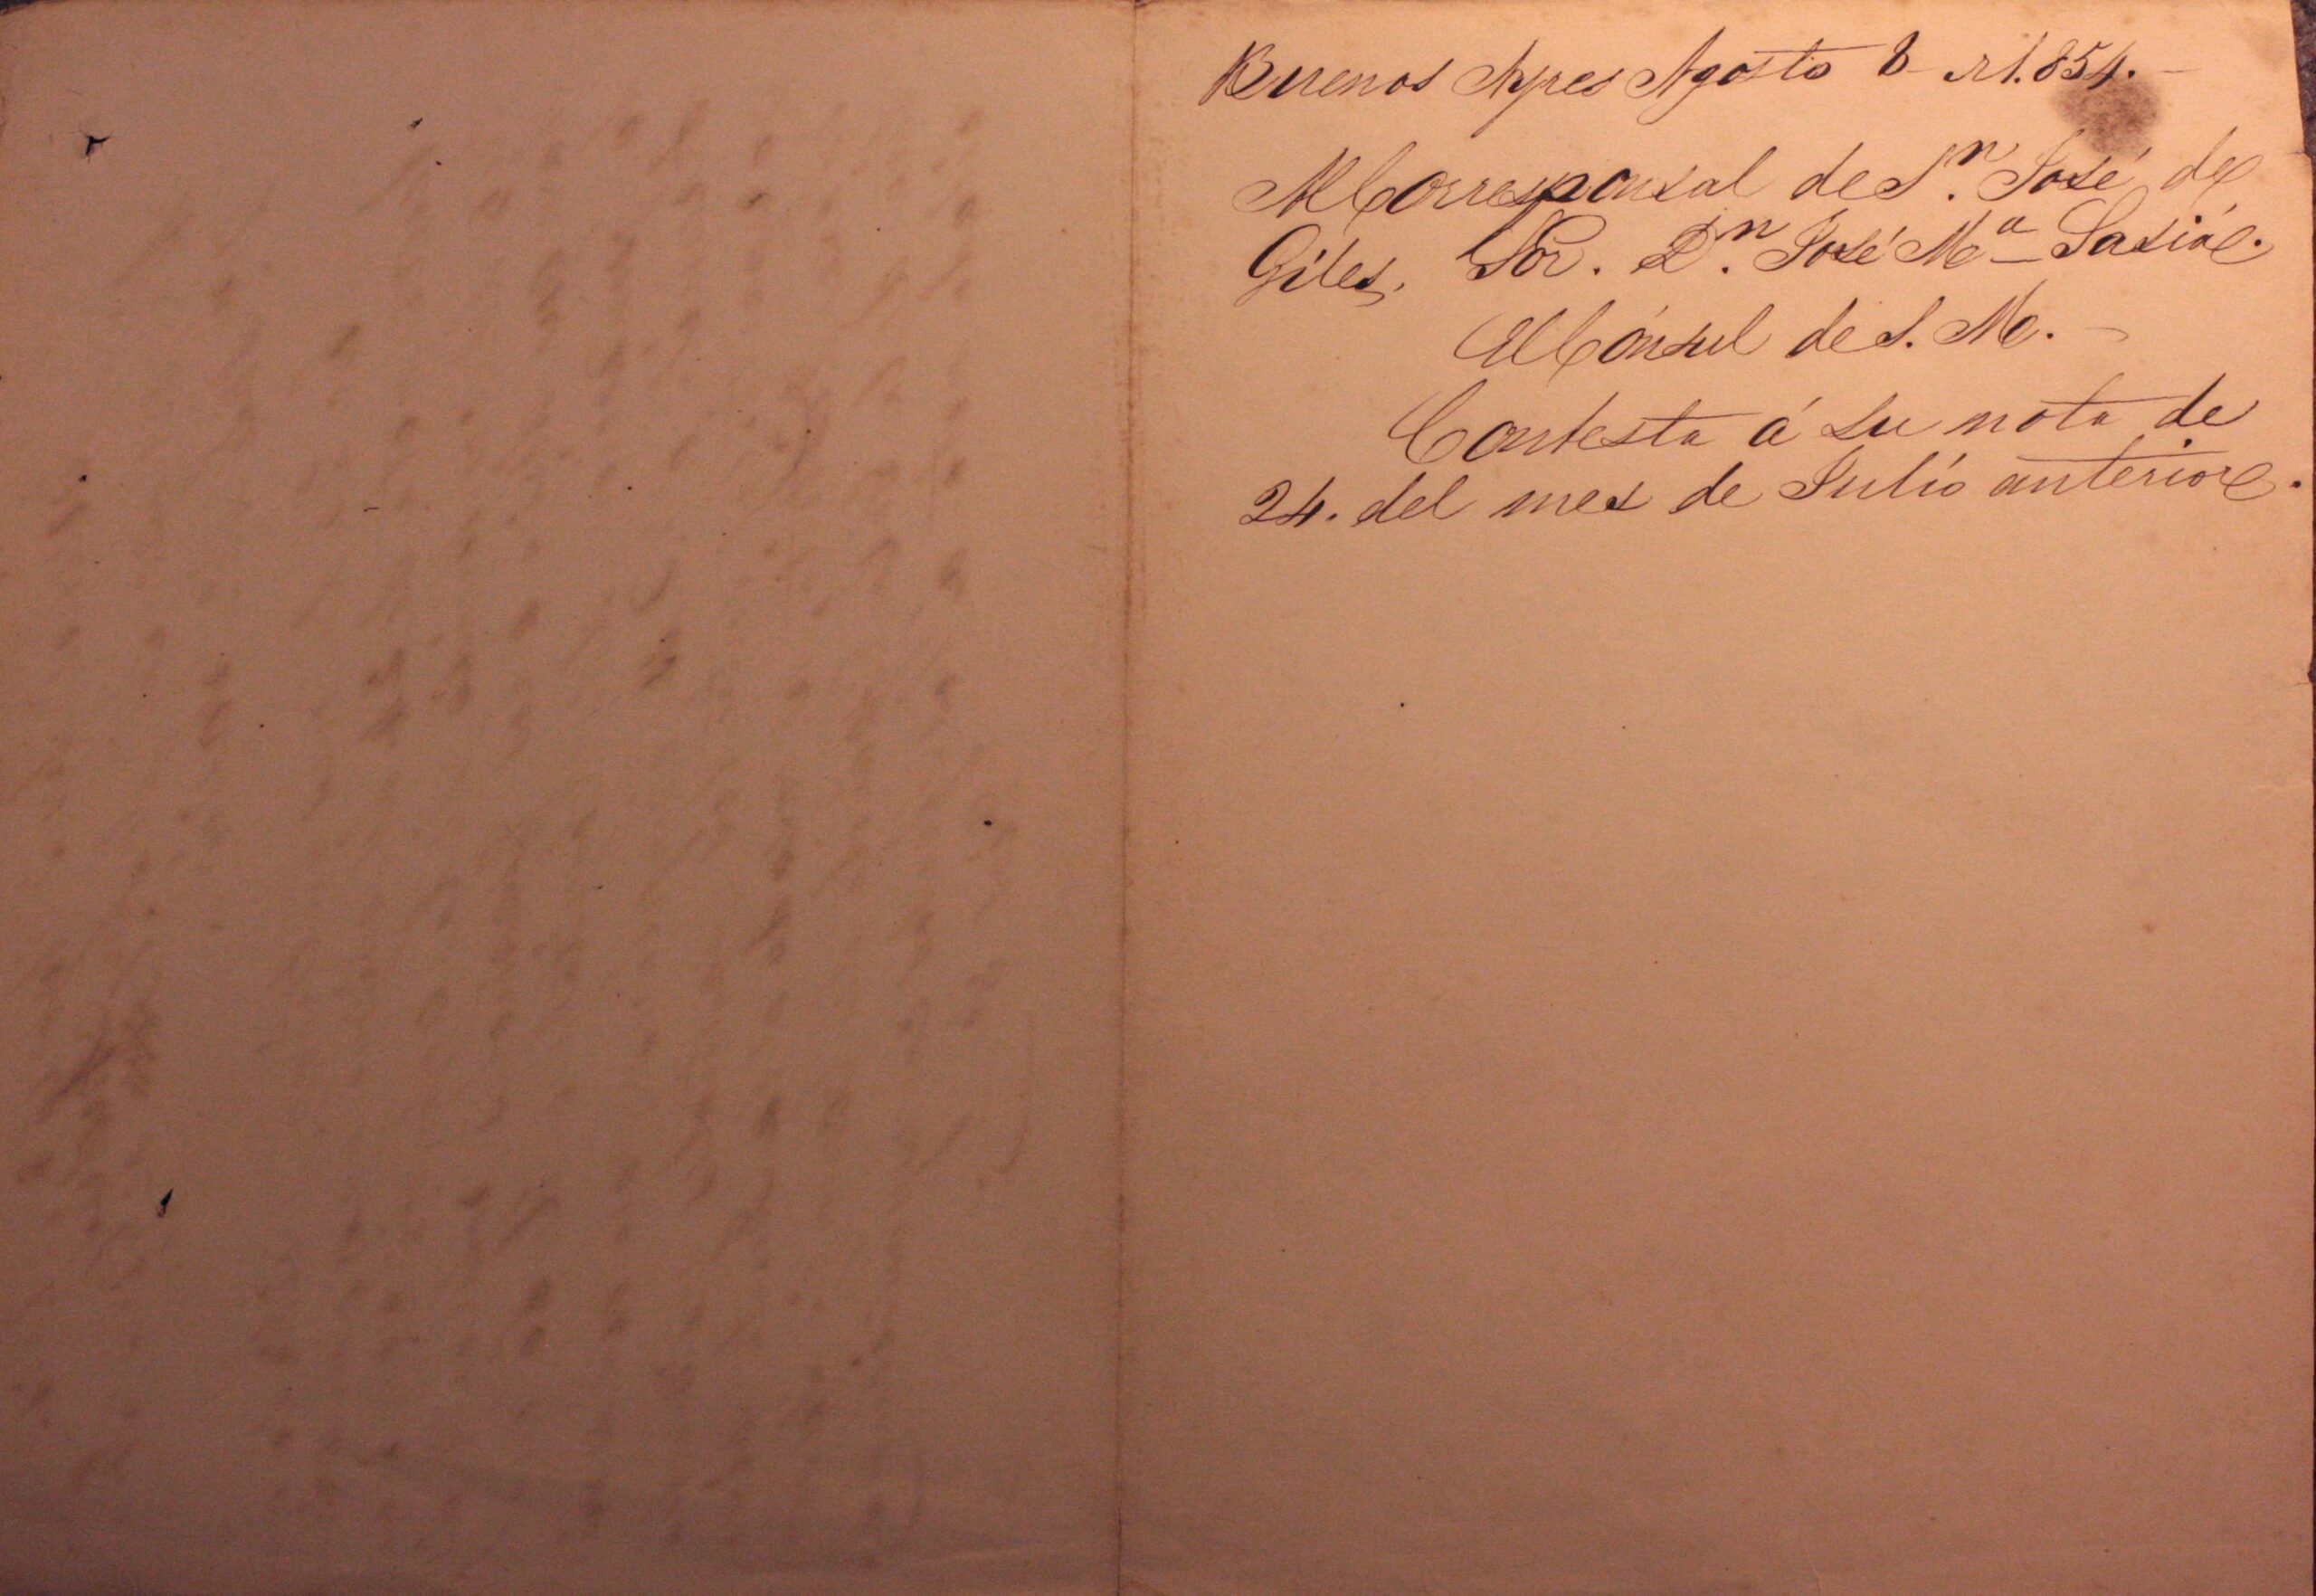 Buenos Ayres Agosto 8 de 1.854.
Al Corresponsal de S.n José de
Giles, Sor. D.n José M.a Sasia.
El Cónsul de S. M.
Contesta á su nota de
24. del mes de Julio anterior.